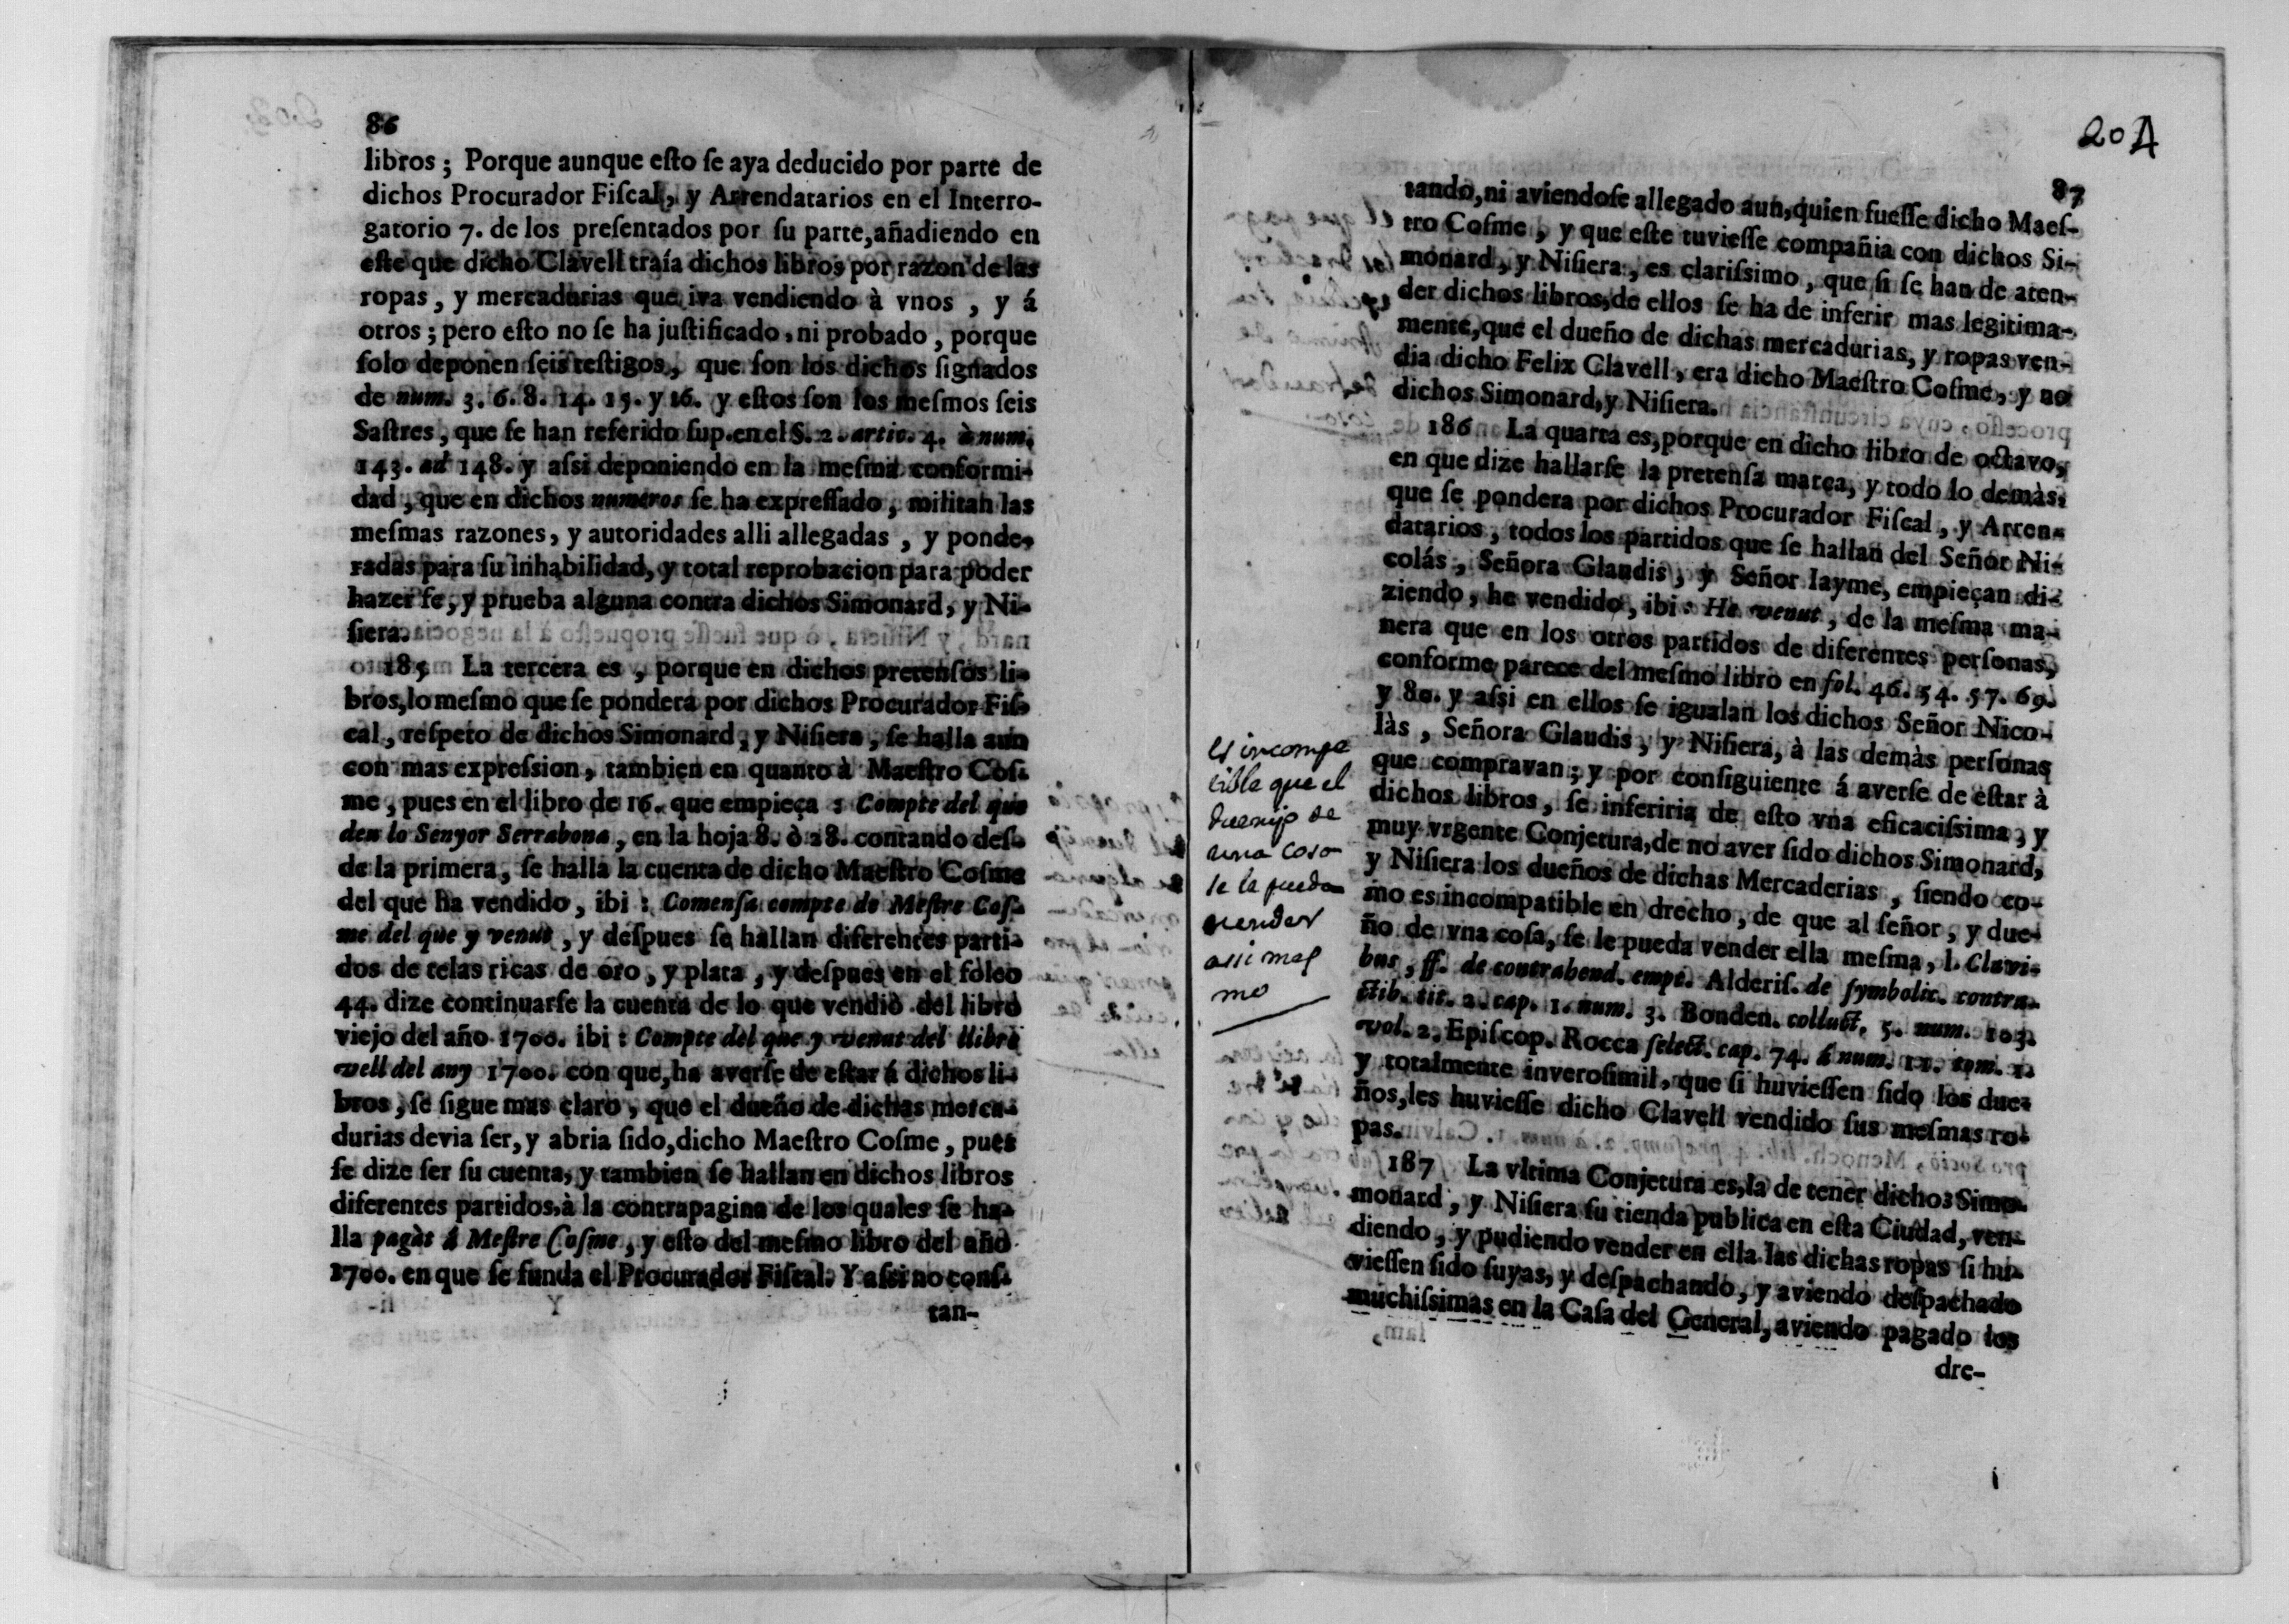 86
libros; Porque aunque eſto ſe aya deducido por parte de
dichos Procurador Fiſcal, y Arrendatarios en el Interro-
gatorio 7. de los preſentados por ſu parte, añadiendo en
eſte que dicho Clavell traía dichos libros por razon de las
ropas, y mercadurias que iva vendiendo à vnos, y á
otros; pero eſto no ſe ha juſtificado, ni probado, porque
ſolo deponen ſeis teſtigos, que ſon los dichos ſignados
de num. 3. 6. 8. 14. 15. y 16. y eſtos ſon los meſmos ſeis
Saſtres, que ſe han referido ſup. en el §. 2. artic. 4. à num.
143. ad 148. y aſsi deponiendo en la meſma conformi-
dad, que en dichos numeros ſe ha expreſſado, militan las
meſmas razones, y autoridades alli allegadas, y ponde-
radas para ſu inhabilidad, y total reprobacion para poder
hazer fe, y prueba alguna contra dichos Simonard, y Ni-
ſiera.
185 La tercera es, porque en dichos pretenſos li-
bros, lo meſmo que ſe pondera por dichos Procurador Fiſ-
cal, reſpeto de dichos Simonard, y Niſiera, ſe halla aun
con mas expreſsion, tambien en quanto à Maeſtro Coſ-
me, pues en el libro de 16. que empieça: Compte del que
deu lo Senyor Serrabona, en la hoja 8. ò 28. contando deſ-
de la primera, ſe halla la cuenta de dicho Maeſtro Coſme
del que ha vendido, ibi: Comenſa compte de Meſtre Coſ-
me del que y venut, y deſpues ſe hallan diferentes parti-
dos de telas ricas de oro, y plata, y deſpues en el foleo
44. dize continuarſe la cuenta de lo que vendiò del libro
viejo del año 1700. ibi: Compte del que y venut del llibre
vell del any 1700. con que, ha averſe de eſtar á dichos li-
bros, ſe ſigue mas claro, que el dueño de dichas merca-
durias devia ſer, y abria ſido, dicho Maeſtro Coſme, pues
ſe dize ſer ſu cuenta, y tambien ſe hallan en dichos libros
diferentes partidos, à la contrapagina de los quales ſe ha-
lla pagàt á Meſtre Coſme, y eſto del meſmo libro del año
1700. en que ſe funda el Procurador Fiſcal. Y aſsi no conſ-
tan-
204
87
tando, ni aviendoſe allegado aun, quien fueſſe dicho Maeſ-
tro Coſme, y que eſte tuvieſſe compañia con dichos Si-
monard, y Niſiera, es clariſsimo, que ſi ſe han de aten-
der dichos libros, de ellos ſe ha de inferir mas legitima-
mente, que el dueño de dichas mercadurias, y ropas ven-
dia dicho Felix Clavell, era dicho Maeſtro Coſme, y no
dichos Simonard, y Niſiera.
186 La quarta es, porque en dicho libro de octavo,
en que dize hallarſe la pretenſa marca, y todo lo demàs,
que ſe pondera por dichos Procurador Fiſcal, y Arren-
datarios, todos los partidos que ſe hallan del Señor Ni-
colás, Señora Glaudis, y Señor Iayme, empieçan di-
ziendo, he vendido, ibi: He venut, de la meſma ma-
nera que en los otros partidos de diferentes perſonas,
conforme parece del meſmo libro en fol. 46. 54. 57. 69.
y 80. y aſsi en ellos ſe igualan los dichos Señor Nico-
làs, Señora Glaudis, y Niſiera, à las demàs perſonas
que compravan; y por conſiguiente á averſe de eſtar à
dichos libros, ſe inferiria de eſto vna eficaciſsima, y
muy vrgente Conjetura, de no aver ſido dichos Simonard,
y Niſiera los dueños de dichas Mercaderias, ſiendo co-
mo es incompatible en drecho, de que al ſeñor, y due-
ño de vna coſa, ſe le pueda vender ella meſma, l. Clavi-
bus, ff. de contrahend. empt. Alderiſ. de ſymbolic. contra-
ctib. tit. 2. cap. 1. num. 3. Bonden. colluct. 5. num. 103.
vol. 2. Epiſcop. Rocca ſelect. cap. 74. á num. 11. tom. 1.
y totalmente inveroſimil, que ſi huvieſſen ſido los due-
ños, les huvieſſe dicho Clavell vendido ſus meſmas ro-
pas.
187 La vltima Conjetura es, la de tener dichos Simo-
monard, y Niſiera ſu tienda publica en eſta Ciudad, ven-
diendo, y pudiendo vender en ella las dichas ropas ſi hu-
vieſſen ſido ſuyas, y deſpachando, y aviendo deſpachado
muchiſsimas en la Caſa del General, aviendo pagado los
dre-
es incompa
tible que el
duenyo de
una cosa
se la pueda
vender
assi mes
mo